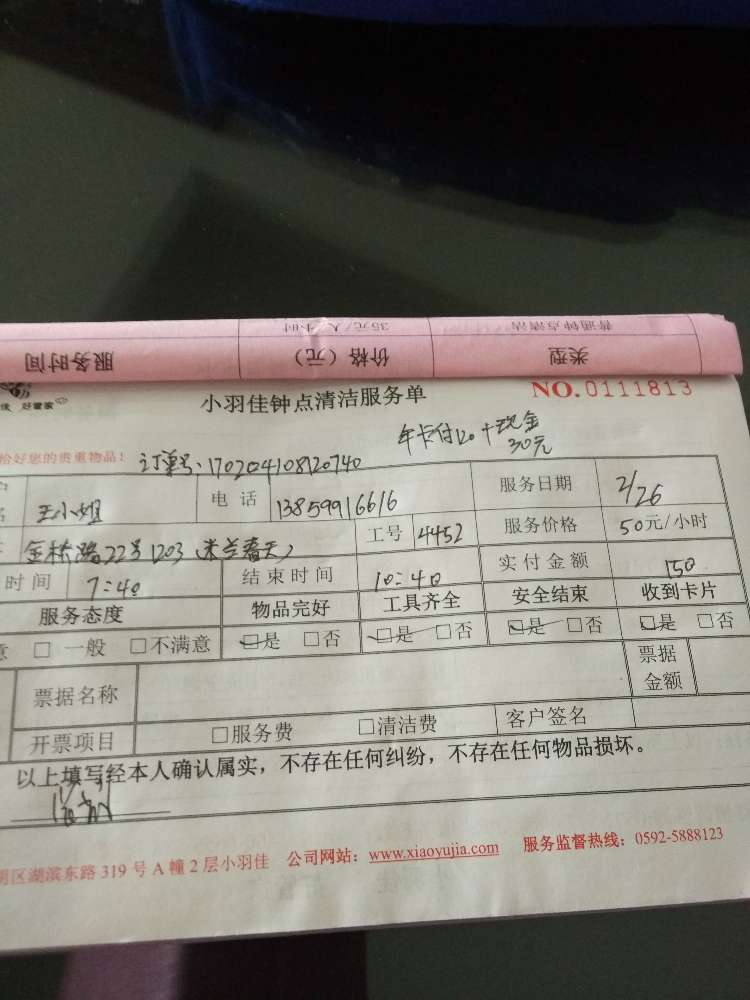 普通钟点清洁 35元/人/小时
类型 价格(元) 服务时间
好管家
小羽佳钟点清洁服务单 NO.0111813
年卡付120+现金
30元
恰好您的贵重物品! 订单号:170204108120740
王小姐 电话 13859916616 服务日期 2/26
金林路22号1203(米兰春天) 工号 4452 服务价格 50元/小时
时间 7:40 结束时间 10:40 实付金额 150
服务态度 物品完好 工具齐全 安全结束 收到卡片
意 □一般 □不满意 □是 □否 □是 □否 □是 □否 □是 □否
票据名称 票据金额
开票项目 □服务费 □清洁费 客户签名
以上填写经本人确认属实,不存在任何纠纷,不存在任何物品损坏。
明区湖滨东路319号A幢2层小羽佳 公司网站:www.xiaoyujia.com 服务监督热线:0592-5888123